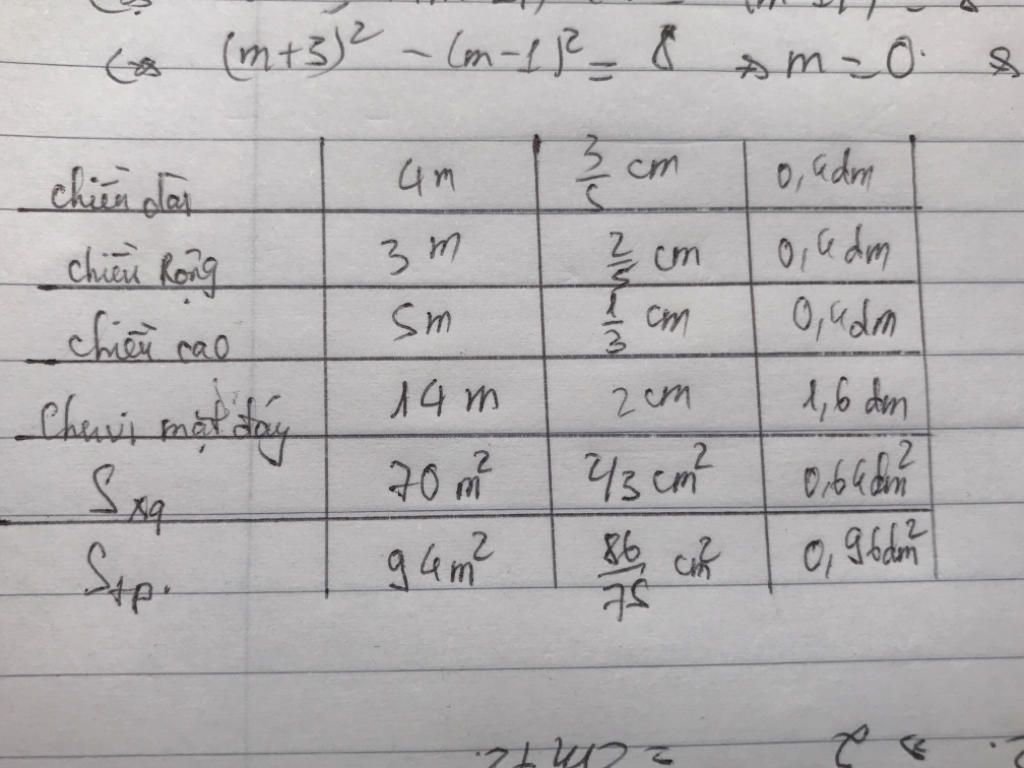 (m+3)² - (m-1)² = 8 ⇒ m = 0.
chiều dài 4m 3/5 cm 0,4dm
chiều Rộng 3m 2/5 cm 0,4dm
chiều cao 5m 1/3 cm 0,4dm
Chu vi mặt đáy 14m 2cm 1,6dm
Sxq 70m² 2/3cm² 0,64dm²
Stp. 94m² 86/75 cm² 0,96dm²